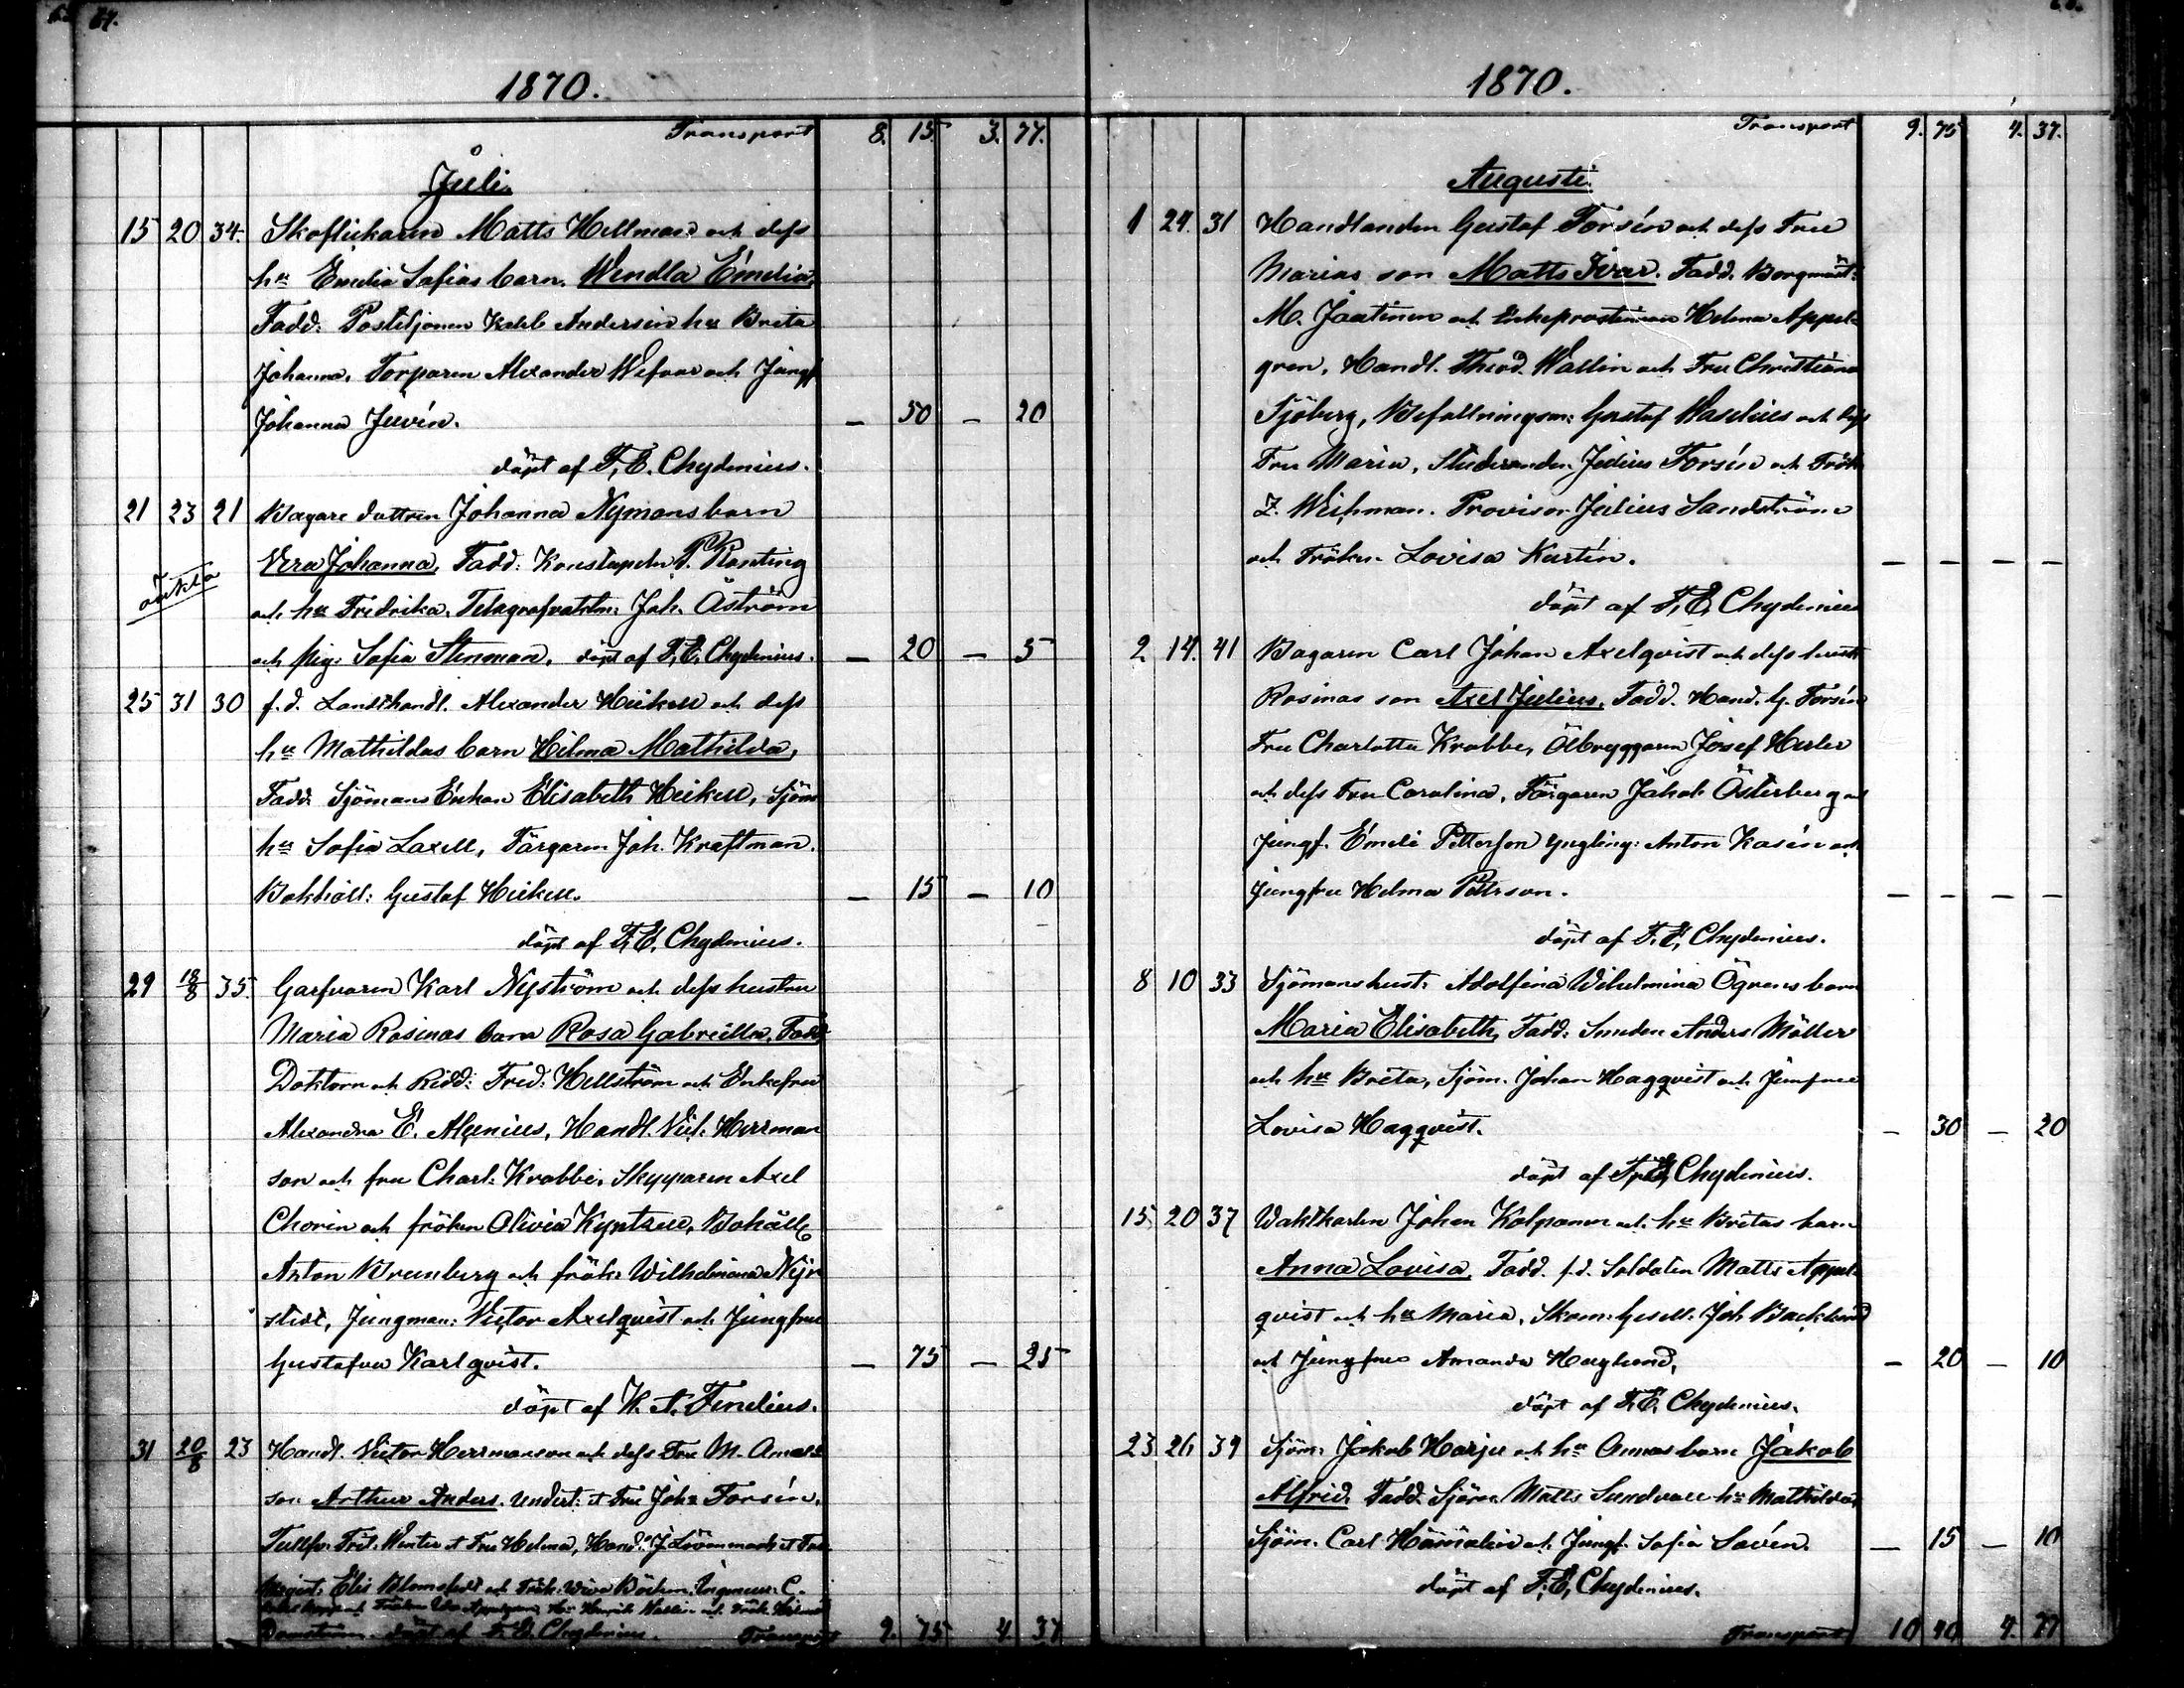 67.
1870.
Transport 8. 15. 3. 77.
Juli.
15 20 34. Skoflickaren Matts Hellman och dess
hu Emelia Sofias barn. Wendla Emelia,
Fadd: Postiljonen Kaleb Andersin hu Brita
Johanna, Torparen Alexander Wefvar och Jungf
Johanna Juvén. — 50 — 20
döpt af F. E. Chydenius.
21 23 21 Bagare dottren Johanna Nymans barn
Vera Johanna, Fadd: Konstapeln P. Ranting
oäkta
och hu Fredrika, Telegrafvaktm: Joh. Åström
och pig: Sofia Stenman, döpt af F. E. Chydenius. — 20 — 5
25 31 30 f. d. Landthandl. Alexander Heikell och dess
hu Mathildas barn Hilma Mathilda,
Fadd: Sjömans Enkan Elisabeth Heikell, Sjöm
hu Sofia Laxell, Färgaren Joh. Kraftman.
Bokhåll: Gustaf Heikell. — 15 — 10
döpt af F. E. Chydenius.
29 18/8 35. Garfvaren Karl Nyström och dess hustru
Maria Rosinas barn Rosa Gabriella, Fadd:
Doktorn och Ridd: Fred: Hellström och Enkefru
Alexandra E. Alcenius, Handl. Vict. Herrman
son och fru Charl: Krabbe, Skepparen Axel
Chorin och fröken Olivia Kyntzell, Bohåll
Anton Brunberg och frök: Wilhelmina Nyn
stedt, Jungman: Victor Axelqvist och Jungfru
Gustafva Karlqvist. — 75 — 25
döpt af K. A. Fenelius.
31 20/8 23 Handl. Victor Herrmanson och dess Fru M. Amalia
son Arthur Anders. Undert: et Fru Joh: Forsén,
Tullfv. Frit. Winter et Fru Helma, Handl J. et Fru
Magist: Elis Blomqvist och Frök: Böckm. Ingenieur: C.
Appelgren, Henrik Wallin och Frök Helma
döpt af F. E. Chydenius. Transport 9. 75 4. 37
1870.
Transport 9. 75 4. 37.
Augusti.
1 24. 31 Handlanden Gustaf Forsén och dess Fru
Marias son Matts Ivar. Fadd. Borgmäst:
M. Jaatinen och Enkeprostinnan Helma Appel-
gren, Handl. Theod. Wallin och Fru Christiana
Sjöberg, Befallningsm: Gustaf Waselius och dess
Fru Maria, Studeranden Julius Forsén och Frök
Z. Wichman. Provisor Julius Sandström
och Fröken Lovisa Kurtén. — — — —
döpt af F. E. Chydenius
2 14. 41 Bagaren Carl Johan Axelqvist och dess hustr
Rosinas son Axel Julius, Fadd. Hand. G. Forsén
Fru Charlotta Krabbe, Ölbryggaren Josef Hesler
och dess Fru Carolina, Färgaren Jakob Österberg och
Jungf. Emeli Petterson Yngling: Anton Kasén och
jungfru Helma Petterson. — — — —
döpt af F. E. Chydenius.
8 10 33 Sjömanshust: Adolfina Wilhelmina Ögrens barn
Maria Elisabeth, Fadd: Smeden Anders Möller
och hu Brita, Sjöm. Johan Hagqvist och Jungfru
Lovisa Hagqvist. — 30 — 20
döpt af F. E. Chydenius.
15. 20 37 Waktkarlen Johan Kolpanen och hu Britas barn
Anna Lovisa, Fadd. f. d. Soldaten Matts Appel-
qvist och hu Maria, Skom: Gesell: Joh Backlund
och Jungfru Amanda Haglund, — 20 — 10
döpt af F. E. Chydenius.
23. 26 39 Sjöm: Jakob Harju och hu Annas barn Jakob
Alfrid. Fadd. Sjöm. Matts Sundvall hu Mathilda
Sjöm. Carl Hämälin och Jungf. Sofia Lovén. — 15 — 10
döpt af F. E. Chydenius.
Transport 10 40 4. 77